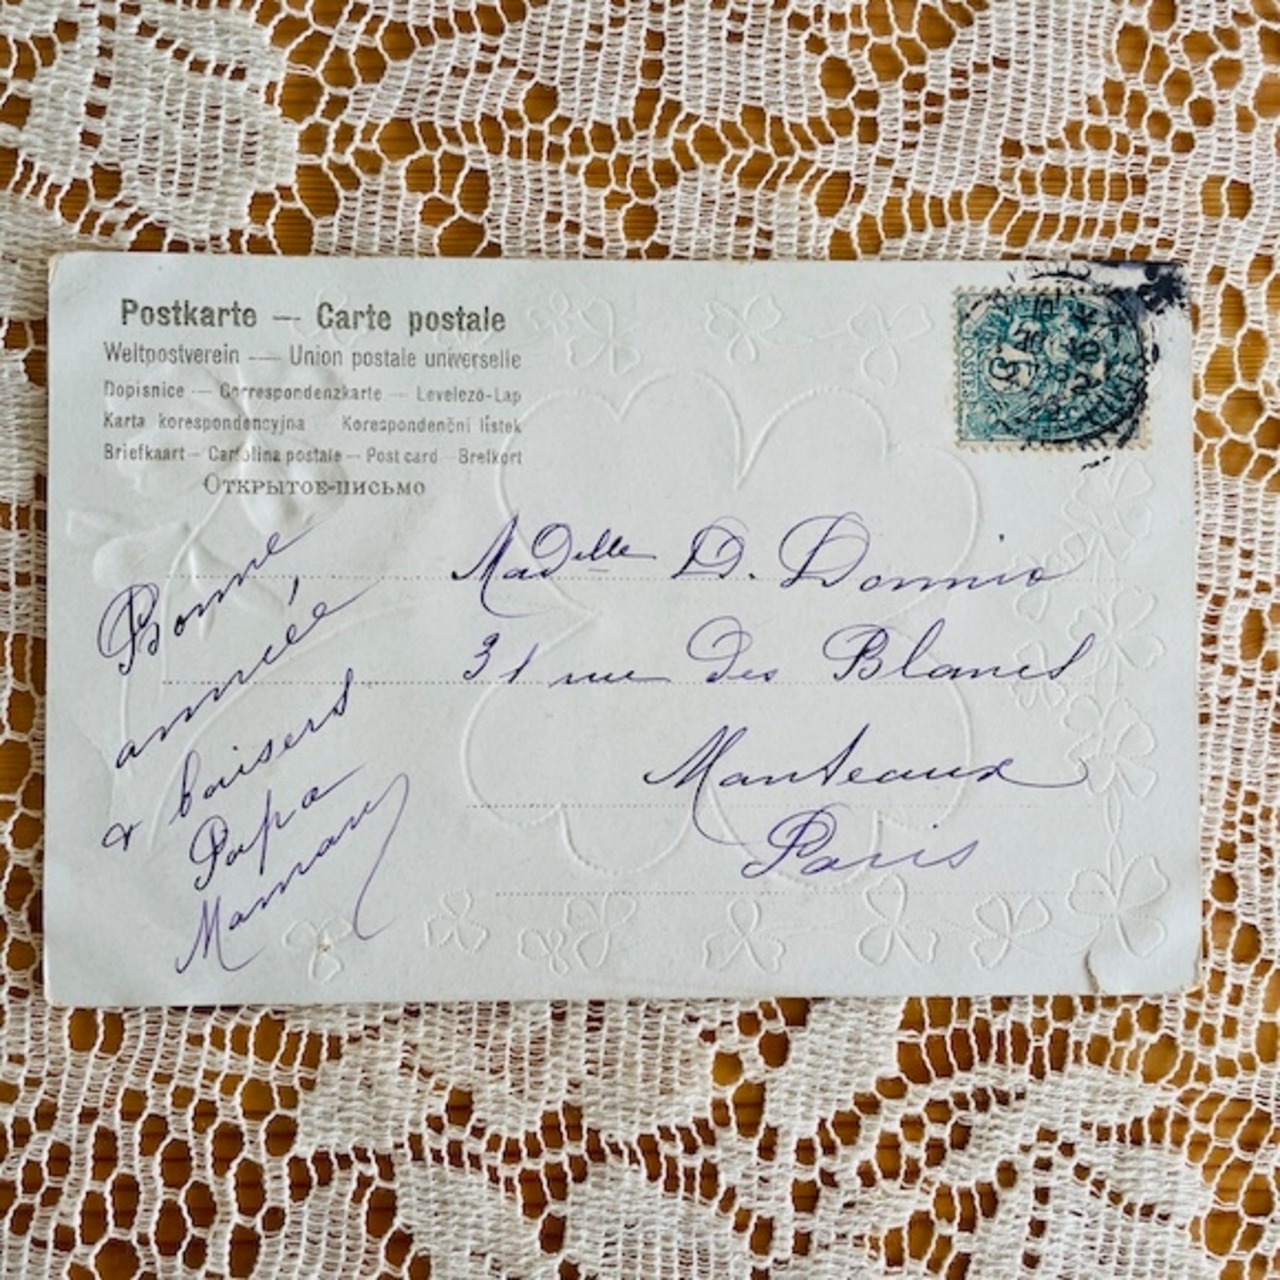 Postkarte — Carte postale
Weltpostverein — Union postale universelle
Dopisnice — Correspondenzkarte — Levelezö-Lap
Karta korespondencyjna Korespondenční lístek
Briefkaart — Cartolina postale — Post card — Brefkort
Открытое-письмо
POSTES
5
Madelle D. Donnio
31 rue des Blancs
Manteaux
Paris
Bonne
année
& baisers
Papa
Maman